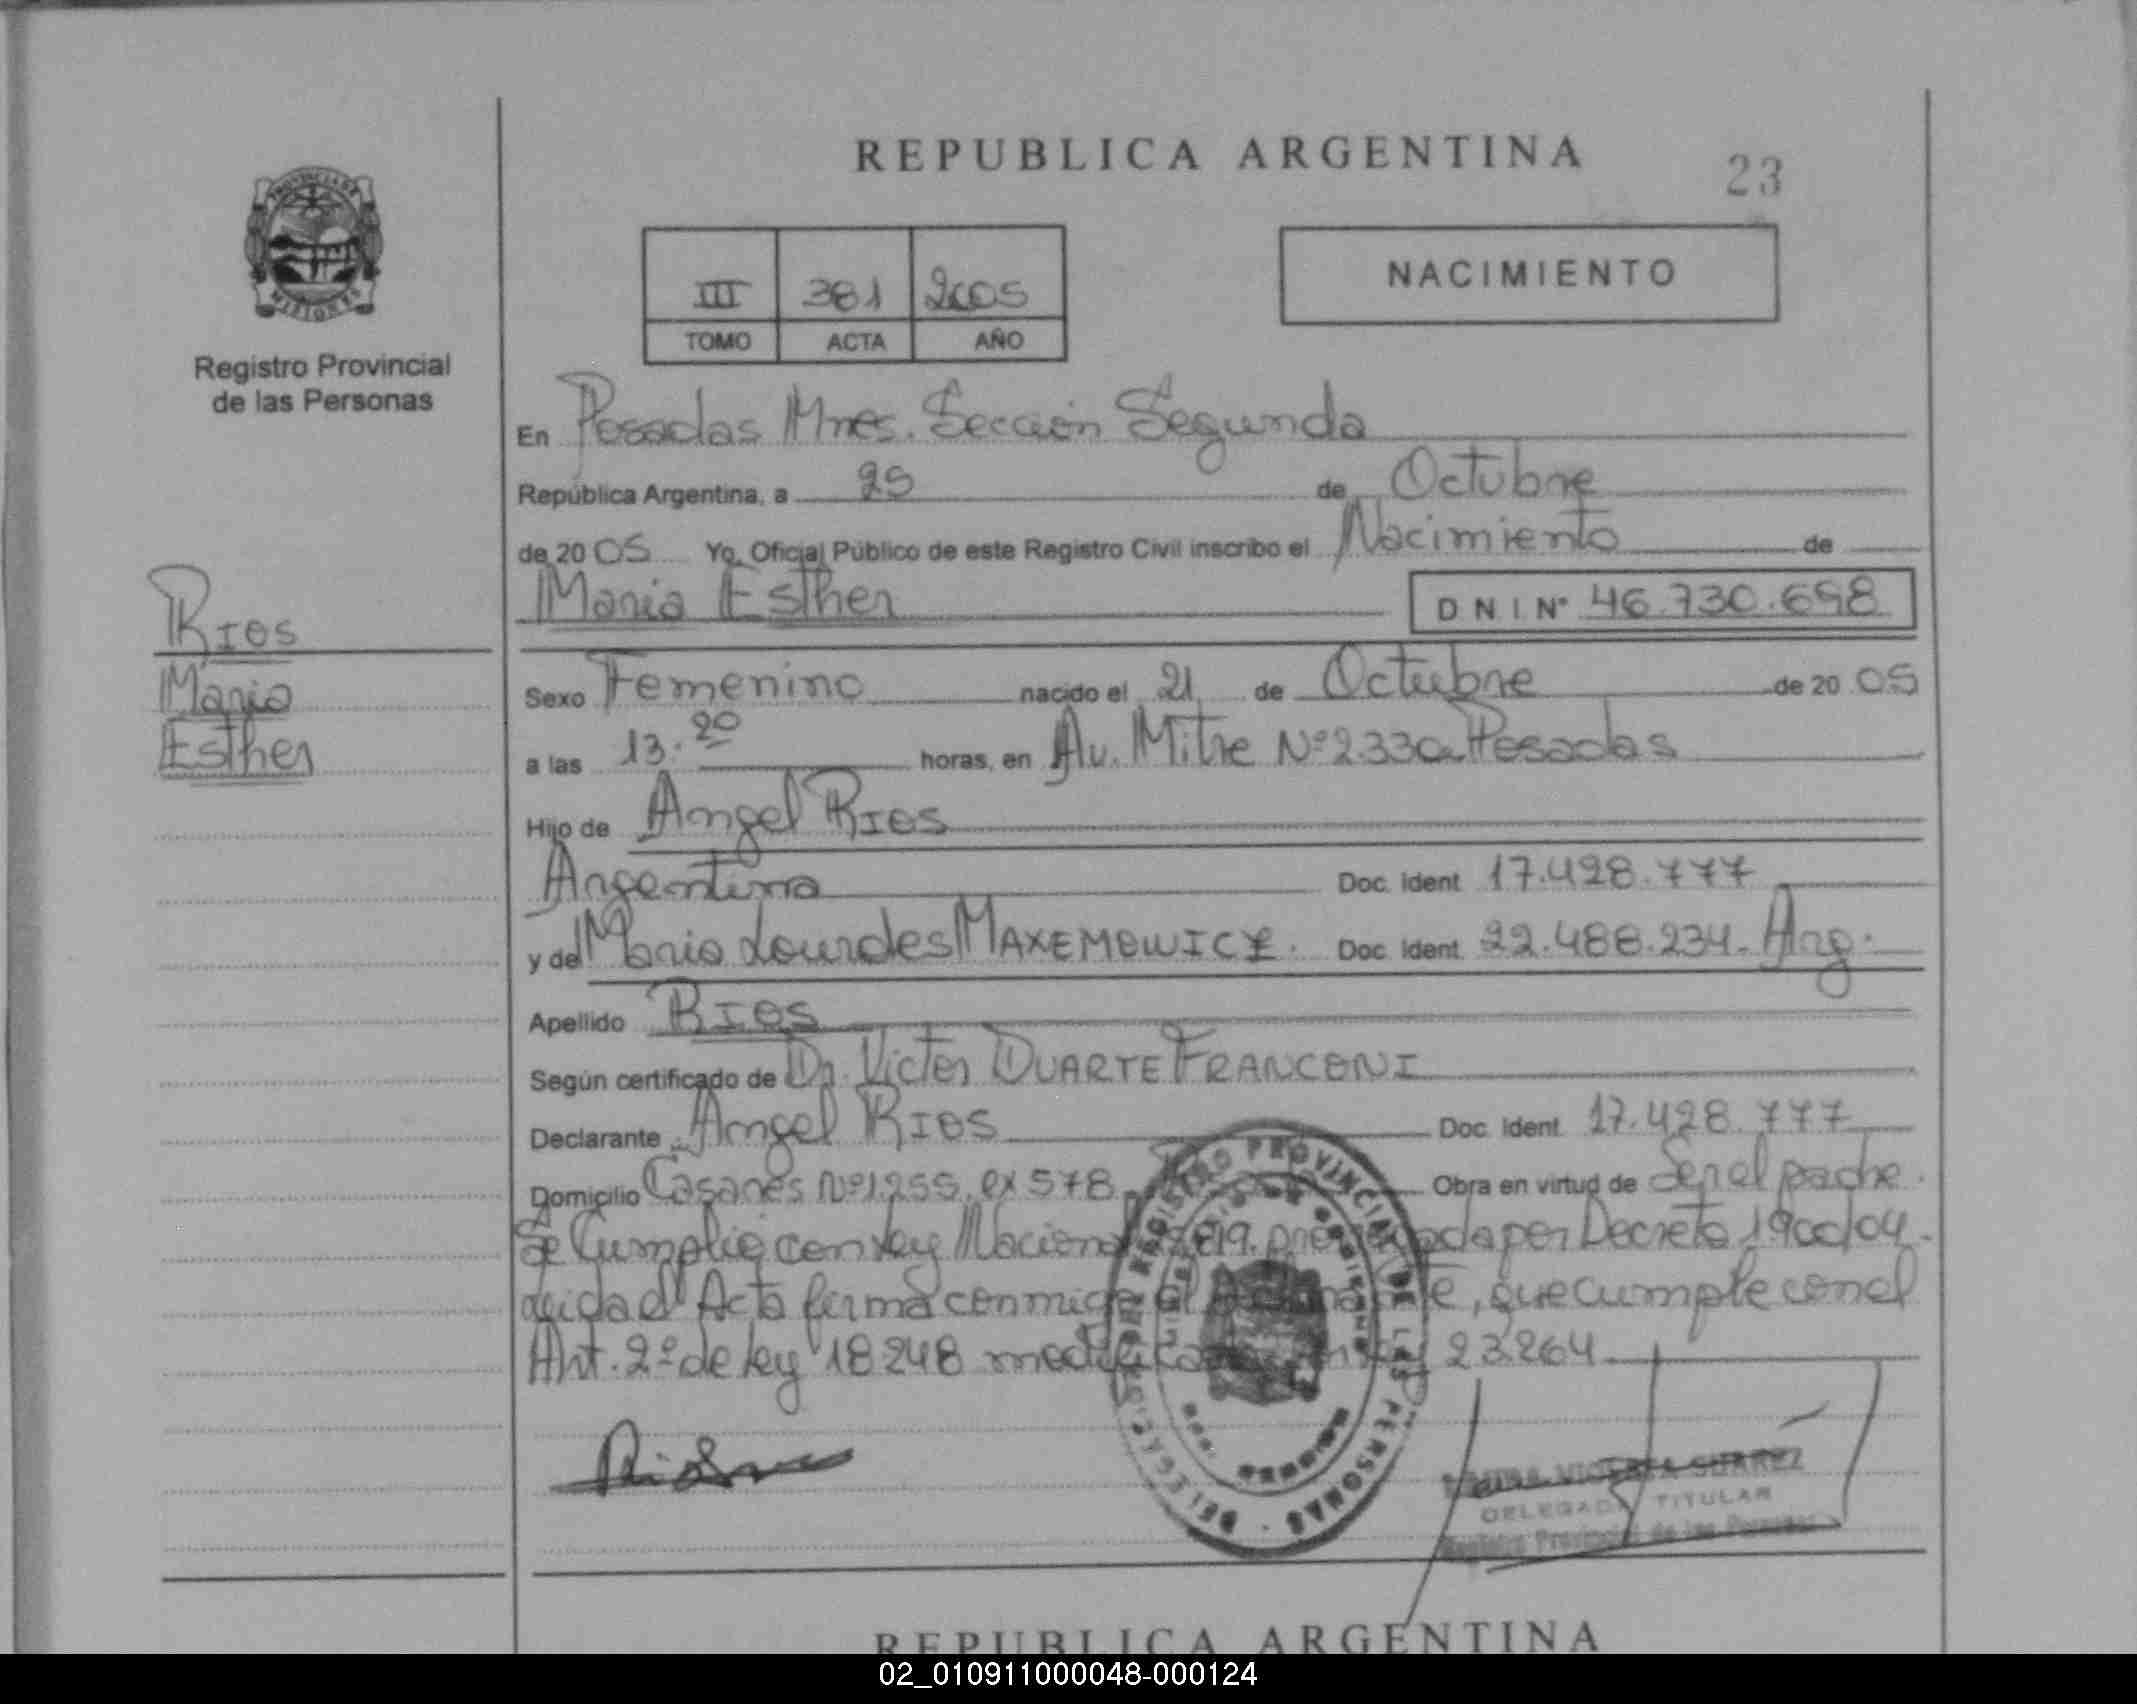 REPUBLICA ARGENTINA
23
PROVINCIA DE
MISIONES
Registro Provincial
de las Personas
III 381 2005
TOMO ACTA AÑO
NACIMIENTO
En Posadas Mnes. Sección Segunda
República Argentina, a 25 de Octubre
de 2005 Yo, Oficial Público de este Registro Civil inscribo el Nacimiento de
Maria Esther DNI Nº 46.730.698
Rios
Maria
Esther
Sexo Femenino nacido el 21 de Octubre de 2005
a las 13.20 horas, en Av. Mitre Nº 2330 Posadas
Hijo de Angel Rios
Argentina Doc. Ident 17.428.777
y de Maria Lourdes MAXEMOWICZ. Doc. Ident. 22.488.234. Arg.
Apellido Rios
Según certificado de Dr. Victor DUARTE FRANCONI
Declarante Angel Rios Doc. Ident. 17.428.777
Domicilio Casares Nº 1.255. ex 578 Obra en virtud de Ser el padre.
Se Cumplió con Ley Nacional por Decreto 1900/04.
Leida el Acta firma conmigo el , que cumple con el
Art. 2º de Ley 18248 23264
REGISTRO PROVINCIAL DE LAS PERSONAS
VICENTA SUAREZ
DELEGADA TITULAR
Registro Provincial de las Personas
REPUBLICA ARGENTINA
02_010911000048-000124